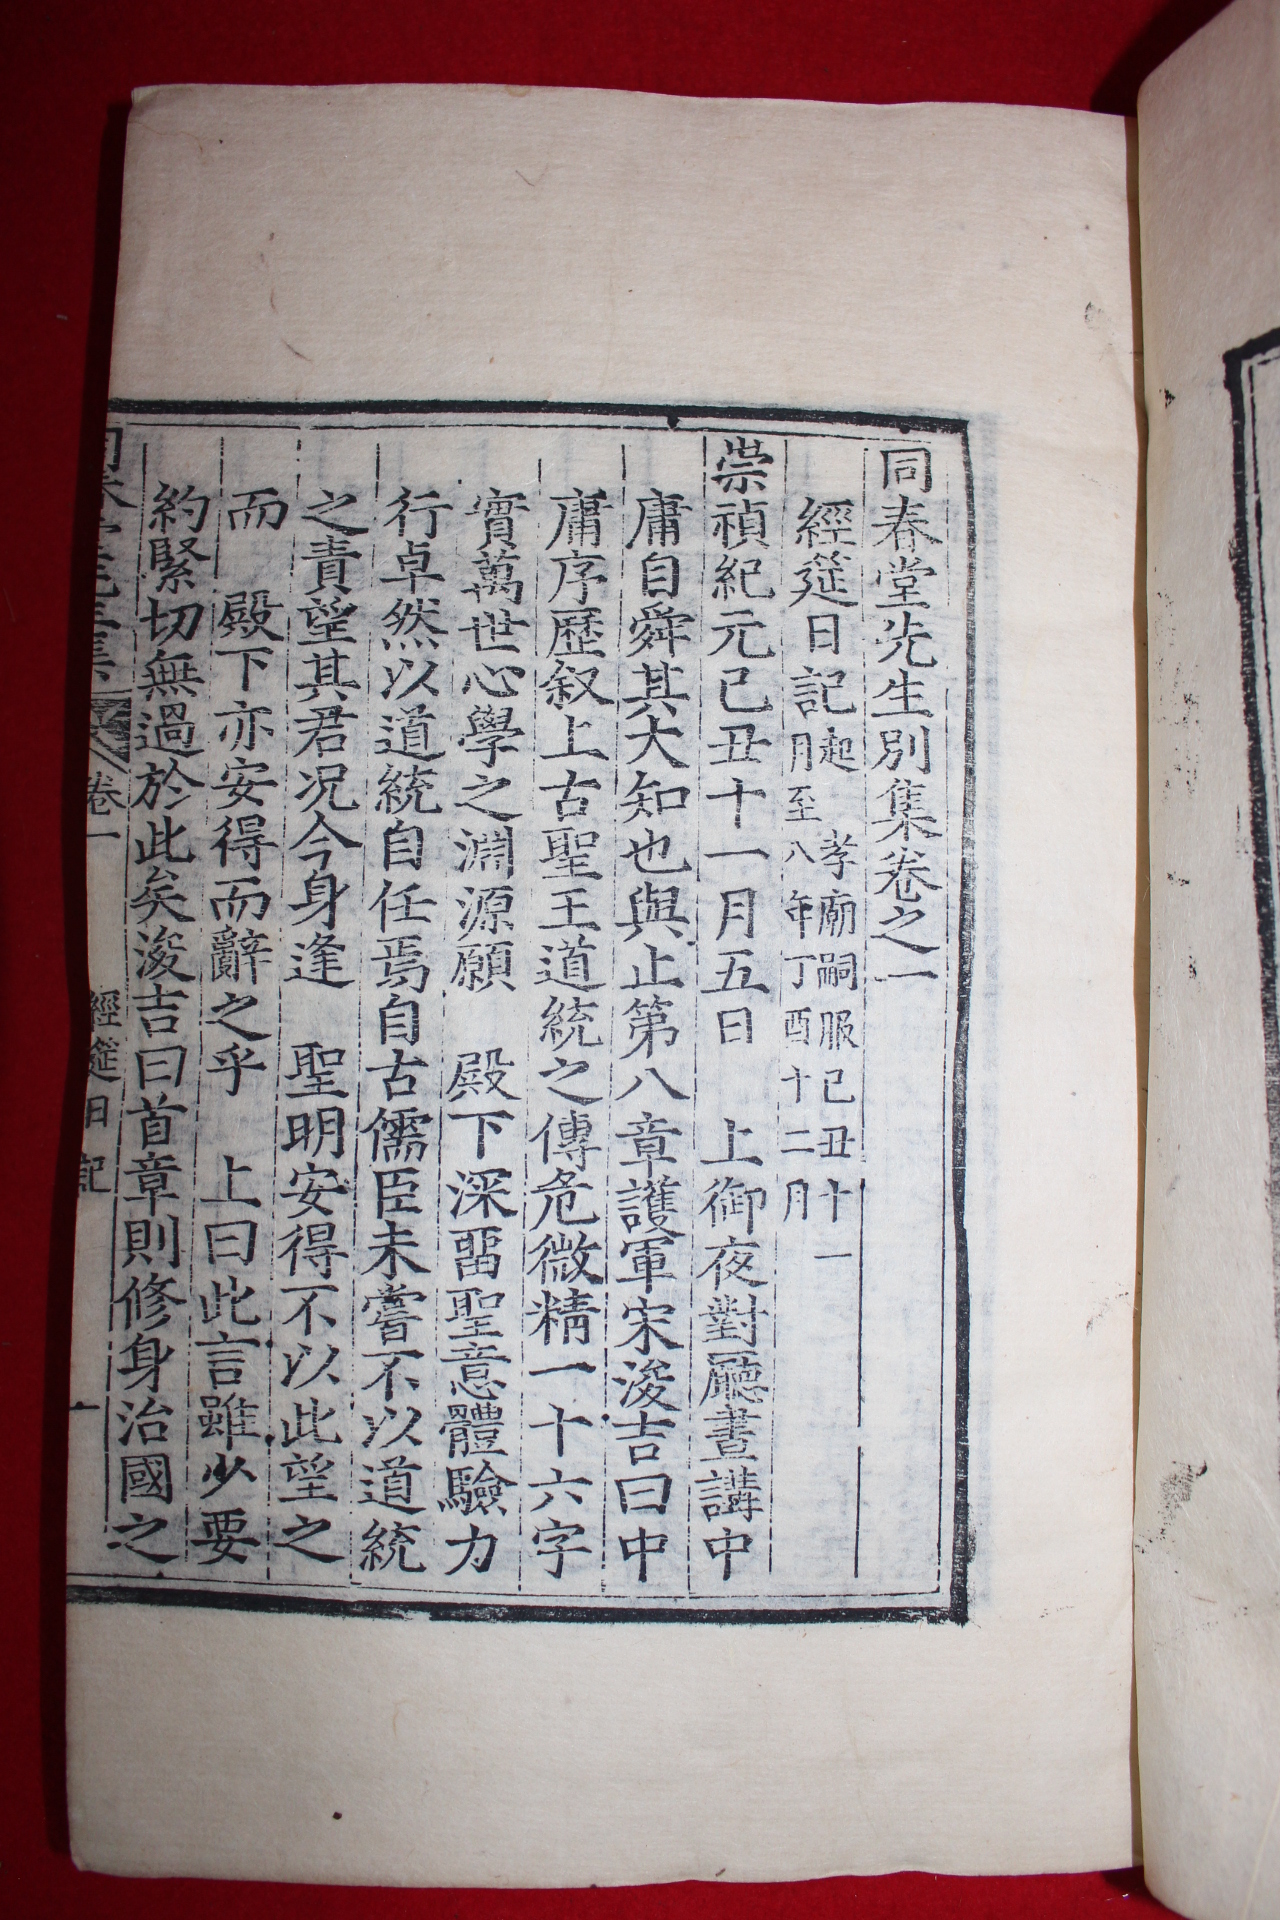 同春堂先生別集卷之一
經筵日記起 孝廟嗣服己丑十一
月至八年丁酉十二月
崇禎紀元己丑十一月五日 上御夜對廳晝講中
庸自舜其大知也與止第八章護軍宋浚吉曰中
庸序歷叙上古聖王道統之傳危微精一十六字
實萬世心學之淵源願 殿下深留聖意體驗力
行卓然以道統自任焉自古儒臣未嘗不以道統
之責望其君况今身逢 聖明安得不以此望之
而 殿下亦安得而辭之乎 上曰此言雖少要
約緊切無過於此矣浚吉曰首章則修身治國之
卷一 經筵日記 一